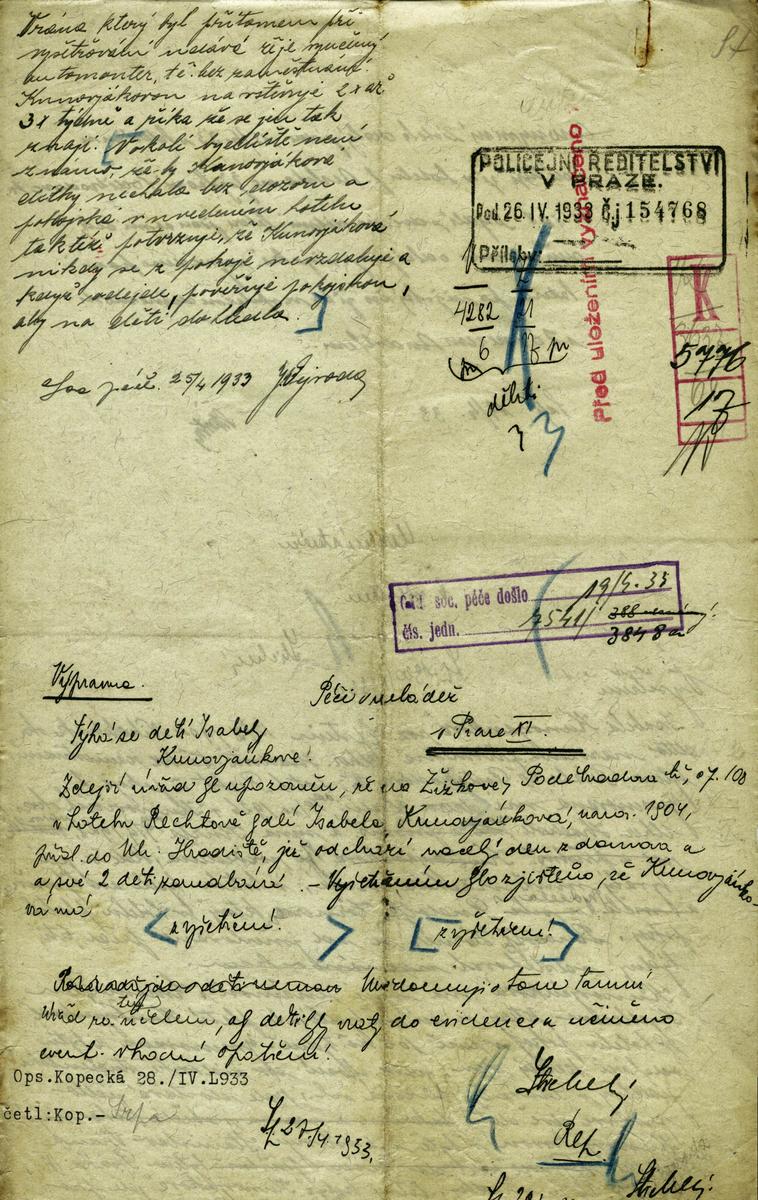 Vrána který byl přítomem při
vyšetřování udává že je vyučený
automonter, t. č. bez zaměstnání.
Kunovjákovou navštěvuje 2x až
3x týdně a říká že se jen tak
znají. [V okolí bydliště není
známo, že by Kunovjáková
dítky nechala bez dozoru a
pokojská v uvedeném hotelu
taktéž potvrzuje, že Kunovjáková
nikdy se z pokoje nevzdaluje a
když odejde, pověřuje pokojskou,
aby na děti dohlédla.]
Soc péč. 25/4 1933
POLICEJNÍ ŘEDITELSTVÍ
V PRAZE.
Pod. 26. IV. 1933 čj 154768
Přílohy:
4282 21
6
Před uložením vyznačeno
K
5776
17
Odd. soc. péče došlo 19/4. 33
čís. jedn. 7541/
3848
Výprava.
Péči o mládež
v Praze XI.
Týká se dětí Isabely
Kunovjánkové!
Zdejší úřad byl upozorněn, že na Žižkově, Poděbradova tř. č. 108
v hotelu Rechtově bydlí Isabela Kunovjánková, naroz. 1904,
přísl. do Uh. Hradiště, jež odchází na celý den z domova a
a své 2 děti zanedbává. – Vyšetřením bylo zjištěno, že Kunovjánko-
vá má
< vyšetření! > [ vyšetření! ]
Uvědomuji o tom tamní
úřad za tím účelem, aby děti byly vzaty do evidence a učiněno
event. vhodné opatření!
Ops.Kopecká 28./IV.L933
četl:Kop.- Srpa
27/4. 1933.